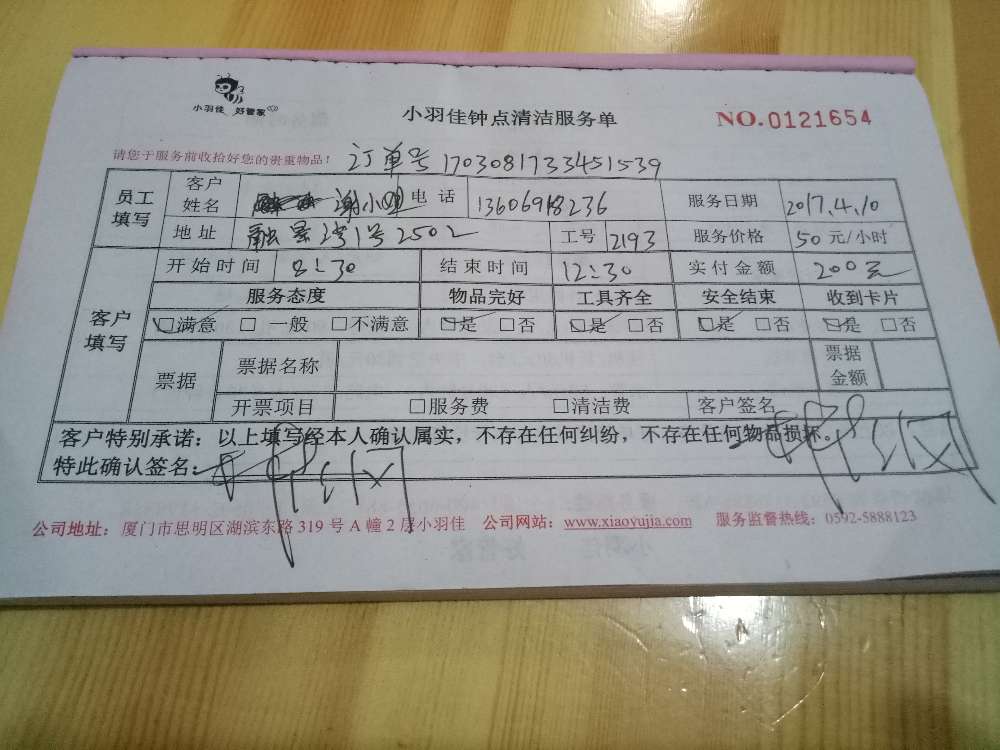 小羽佳 好管家
小羽佳钟点清洁服务单 NO.0121654
请您于服务前收拾好您的贵重物品! 订单号 1703081733451539
员工填写 客户姓名 谢小姐 电话 13606918236 服务日期 2017.4.10
地址 融景湾1号2502 工号 2193 服务价格 50元/小时
客户填写 开始时间 8:30 结束时间 12:30 实付金额 200元
服务态度 物品完好 工具齐全 安全结束 收到卡片
☑满意 □一般 □不满意 ☑是 □否 ☑是 □否 ☑是 □否 ☑是 □否
票据 票据名称 票据金额
开票项目 □服务费 □清洁费 客户签名
客户特别承诺:以上填写经本人确认属实,不存在任何纠纷,不存在任何物品损坏。
特此确认签名:
公司地址:厦门市思明区湖滨东路 319 号 A 幢 2 层小羽佳 公司网站:www.xiaoyujia.com 服务监督热线:0592-5888123